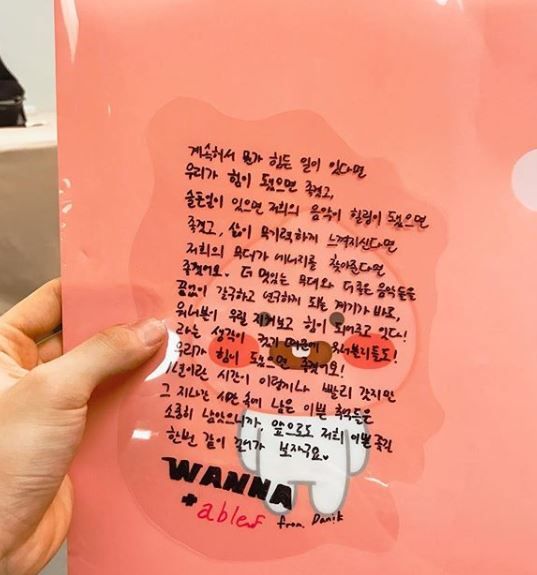 계속해서 뭔가 힘든 일이 있다면
우리가 힘이 됐으면 좋겠고,
슬픈일이 있으면 저희의 음악이 힐링이 됐으면
좋겠고, 삶이 무기력하게 느껴지신다면
저희의 무대가 에너지를 찾아준다면
좋겠어요. 더 멋있는 무대와 더 좋은 음악들을
끊임없이 갈구하고 연구하게 되는 계기가 바로,
워너블이 우릴 지켜보고 힘이 되어주고 있다!
라는 생각이 컸기 때문에 워너블들도!
우리가 힘이 됐으면 좋겠어요!
1년이란 시간이 이렇게나 빨리 갔지만
그 지나간 시간 속에 남은 이쁜 추억들은
소중히 남았으니까, 앞으로도 저희 이쁜 꽃길
한번 같이 걸어가 보자구요♥
WANNA
+able from. Danik